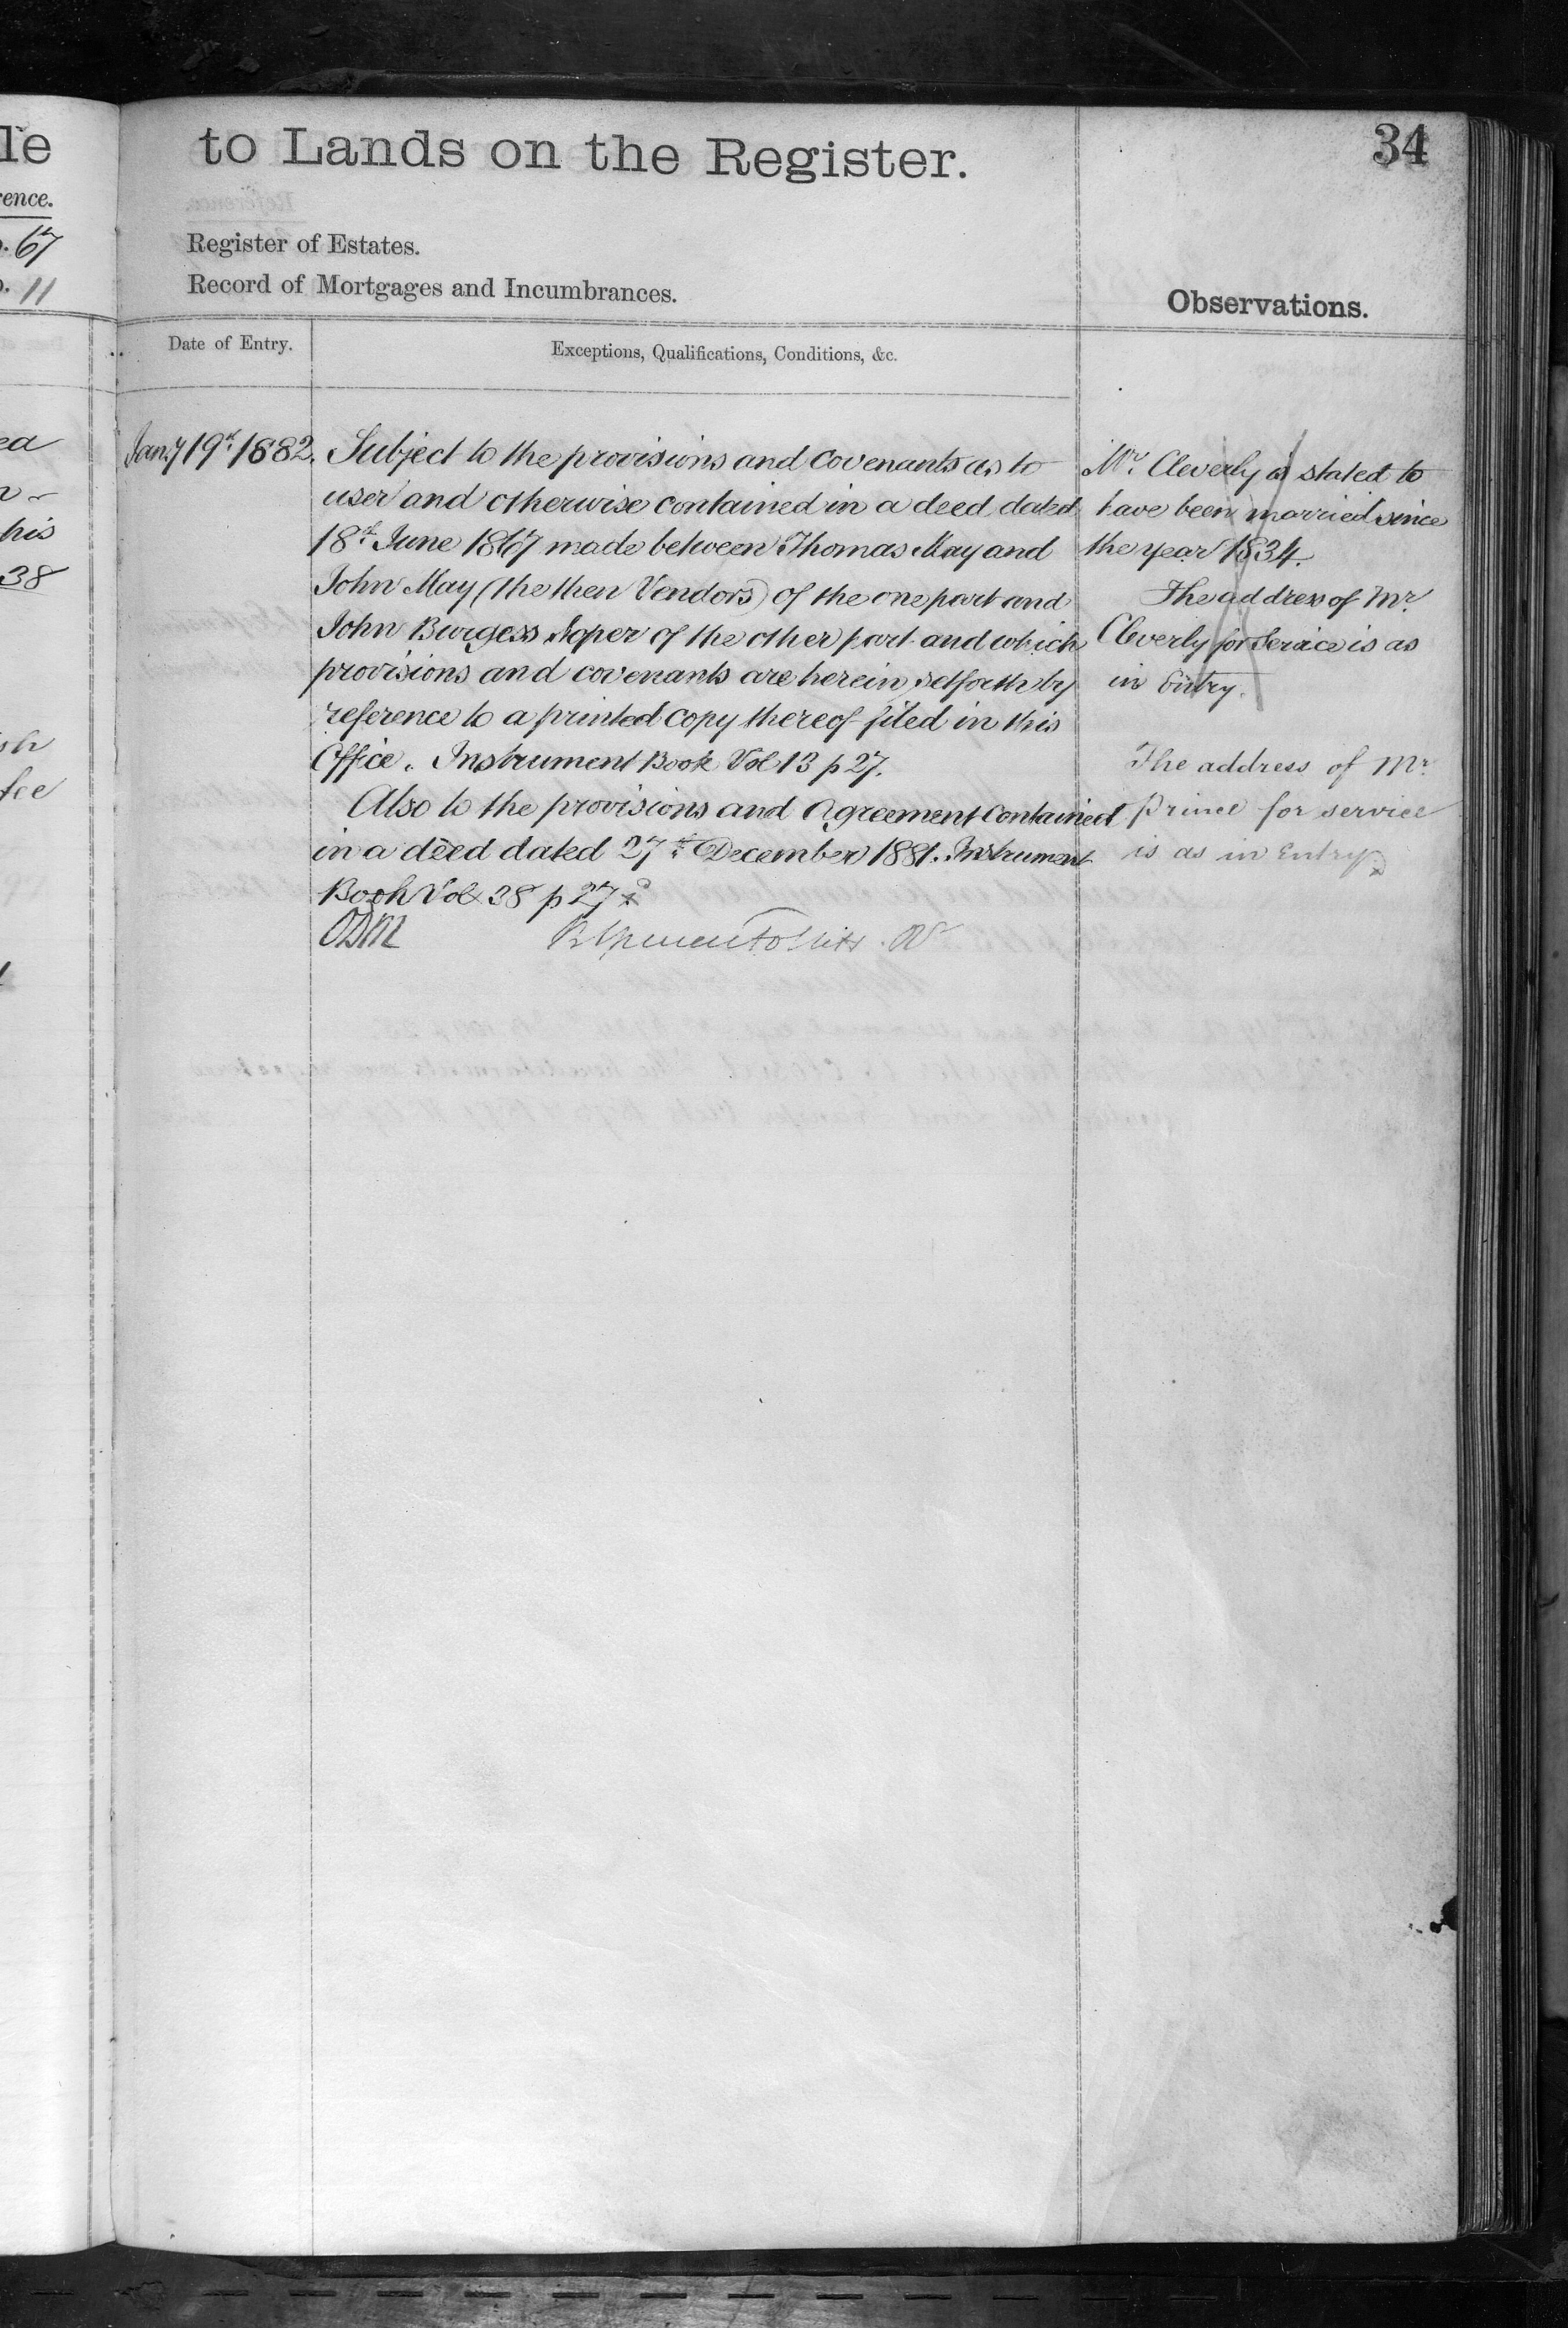 le
to Lands on the Register.
34
rence.
67
11
Register of Estates.
Record of Mortgages and Incumbrances.
Observations.
Date of Entry.
Exceptions, Qualifications, Conditions, &c.
ea
his
38
Jany 19th 1882.
Subject to the provisions and covenants as to
user and otherwise contained in a deed dated
18th June 1867 made between Thomas May and
John May (the then Vendors) of the one part and
John Burgess Soper of the other part and which
provisions and covenants are herein setforth by
reference to a printed copy thereof filed in this
Office. Instrument Book Vol 13 p 27.
Also to the provisions and Agreement contained
in a deed dated 27th December 1881. Instrument
Book Vol 38 p 27
ODM
Mr. Cleverly is stated to
have been married since
the year 1834.
The address of Mr.
Cleverly for Service is as
in Entry.
The address of Mr.
Prince for service
is as in Entry.